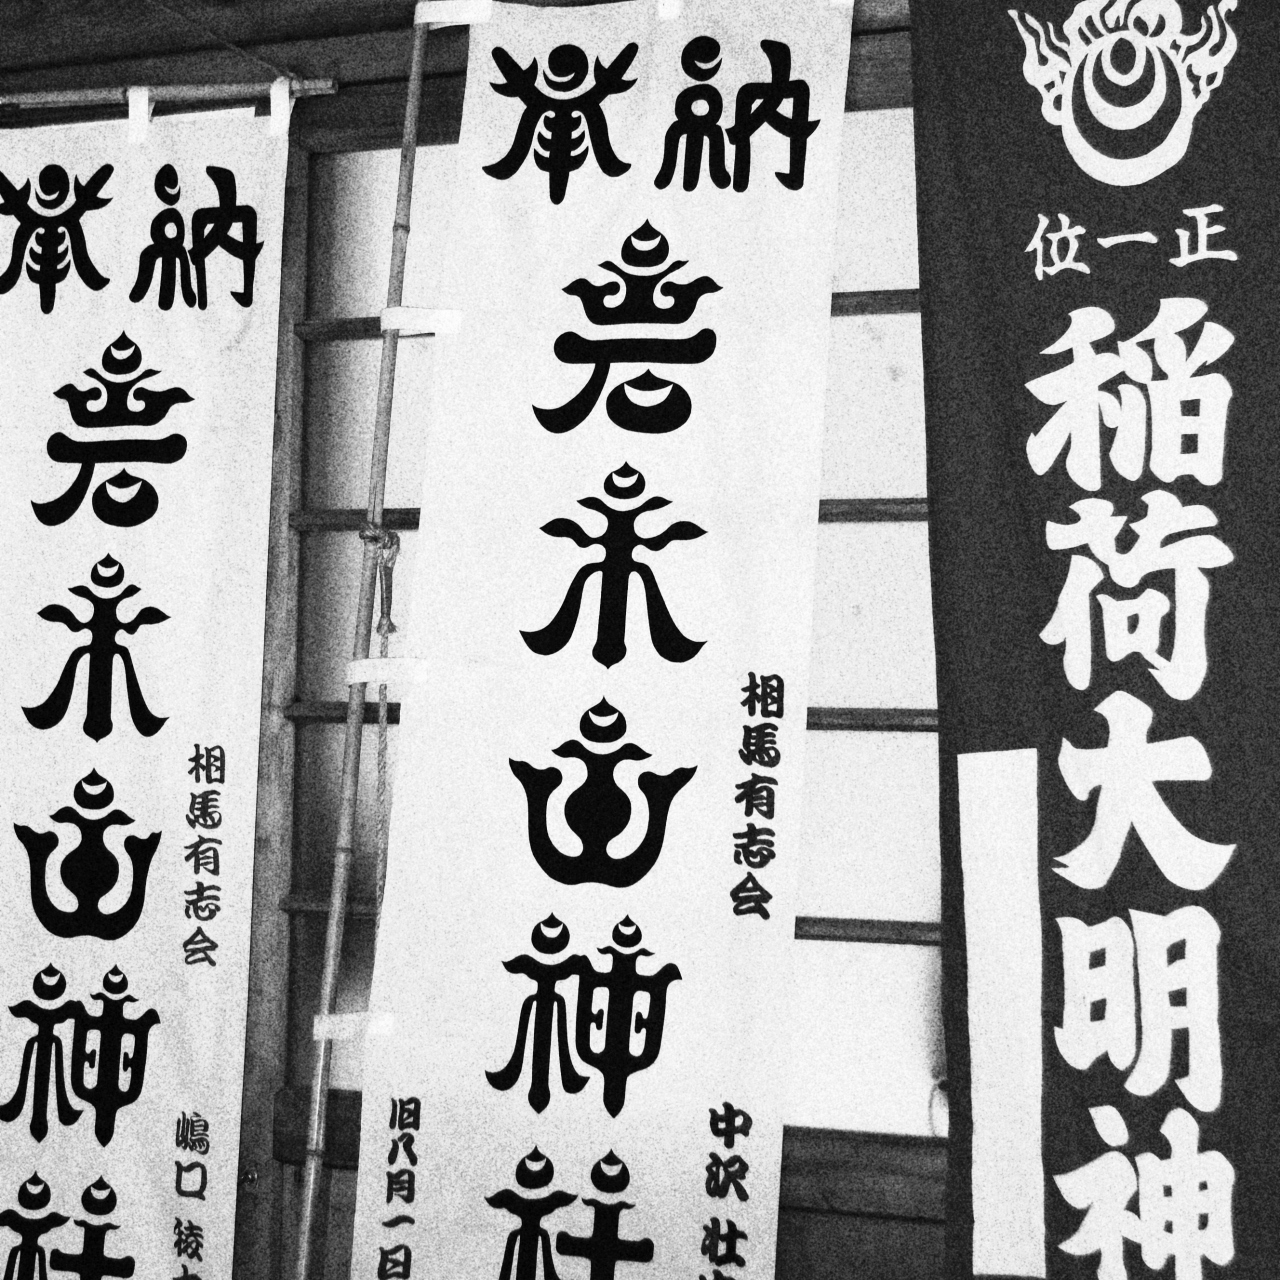 正一位
稲荷大明神
奉納
岩木山神社
相馬有志会
中沢 壮
旧八月一日
奉納
岩木山神社
相馬有志会
嶋口